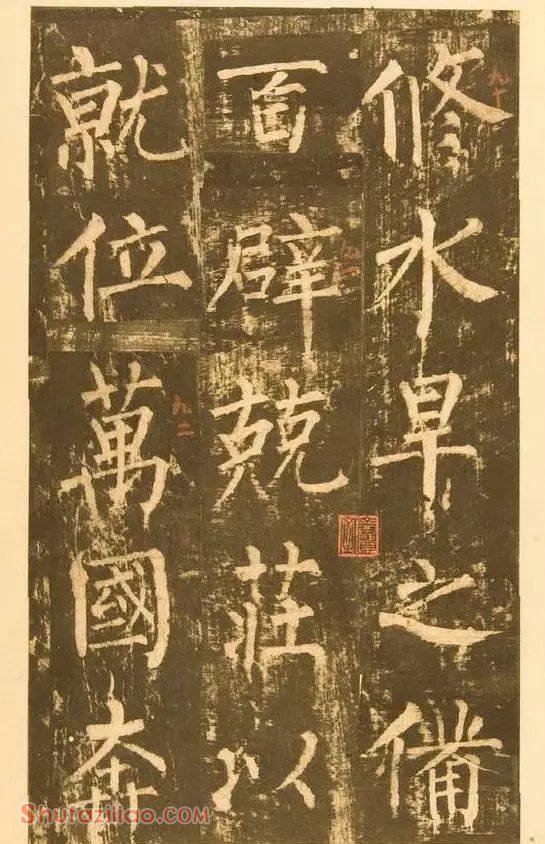 修水旱之備
百辟兢莊以
就位萬國奔
九十
九一
九二
Shufaziliao.com